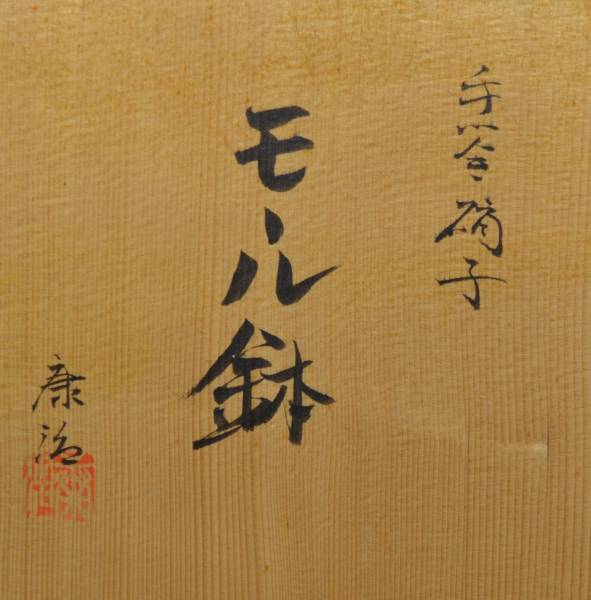 手吹硝子
モール鉢
康治